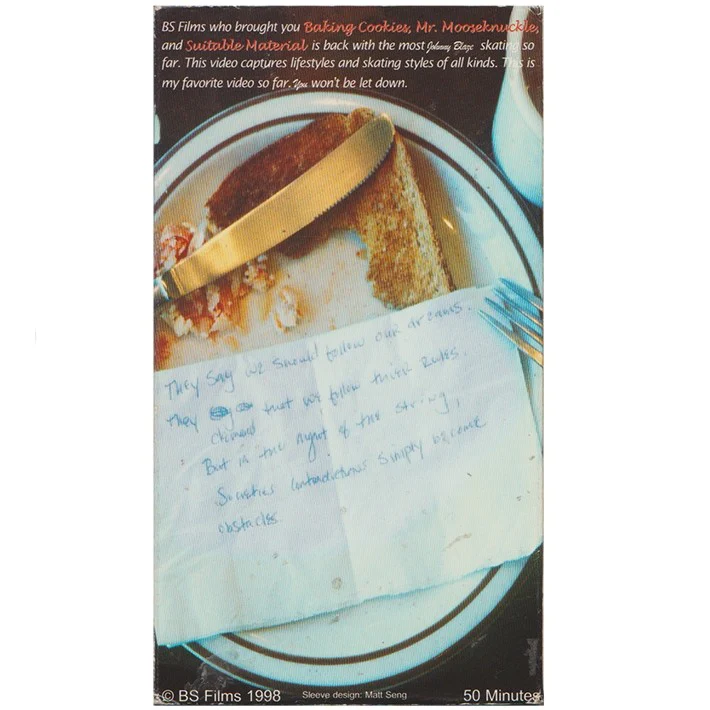 BS Films who brought you Baking Cookies, Mr. Mooseknuckle,
and Suitable Material is back with the most Johnny Blaze skating so
far. This video captures lifestyles and skating styles of all kinds. This is
my favorite video so far. You won't be let down.
They say we should follow our dreams.
They that we follow their rules.
demand
But in the of the string,
Societies contradictions simply become
obstacles.
© BS Films 1998 Sleeve design: Matt Seng 50 Minutes